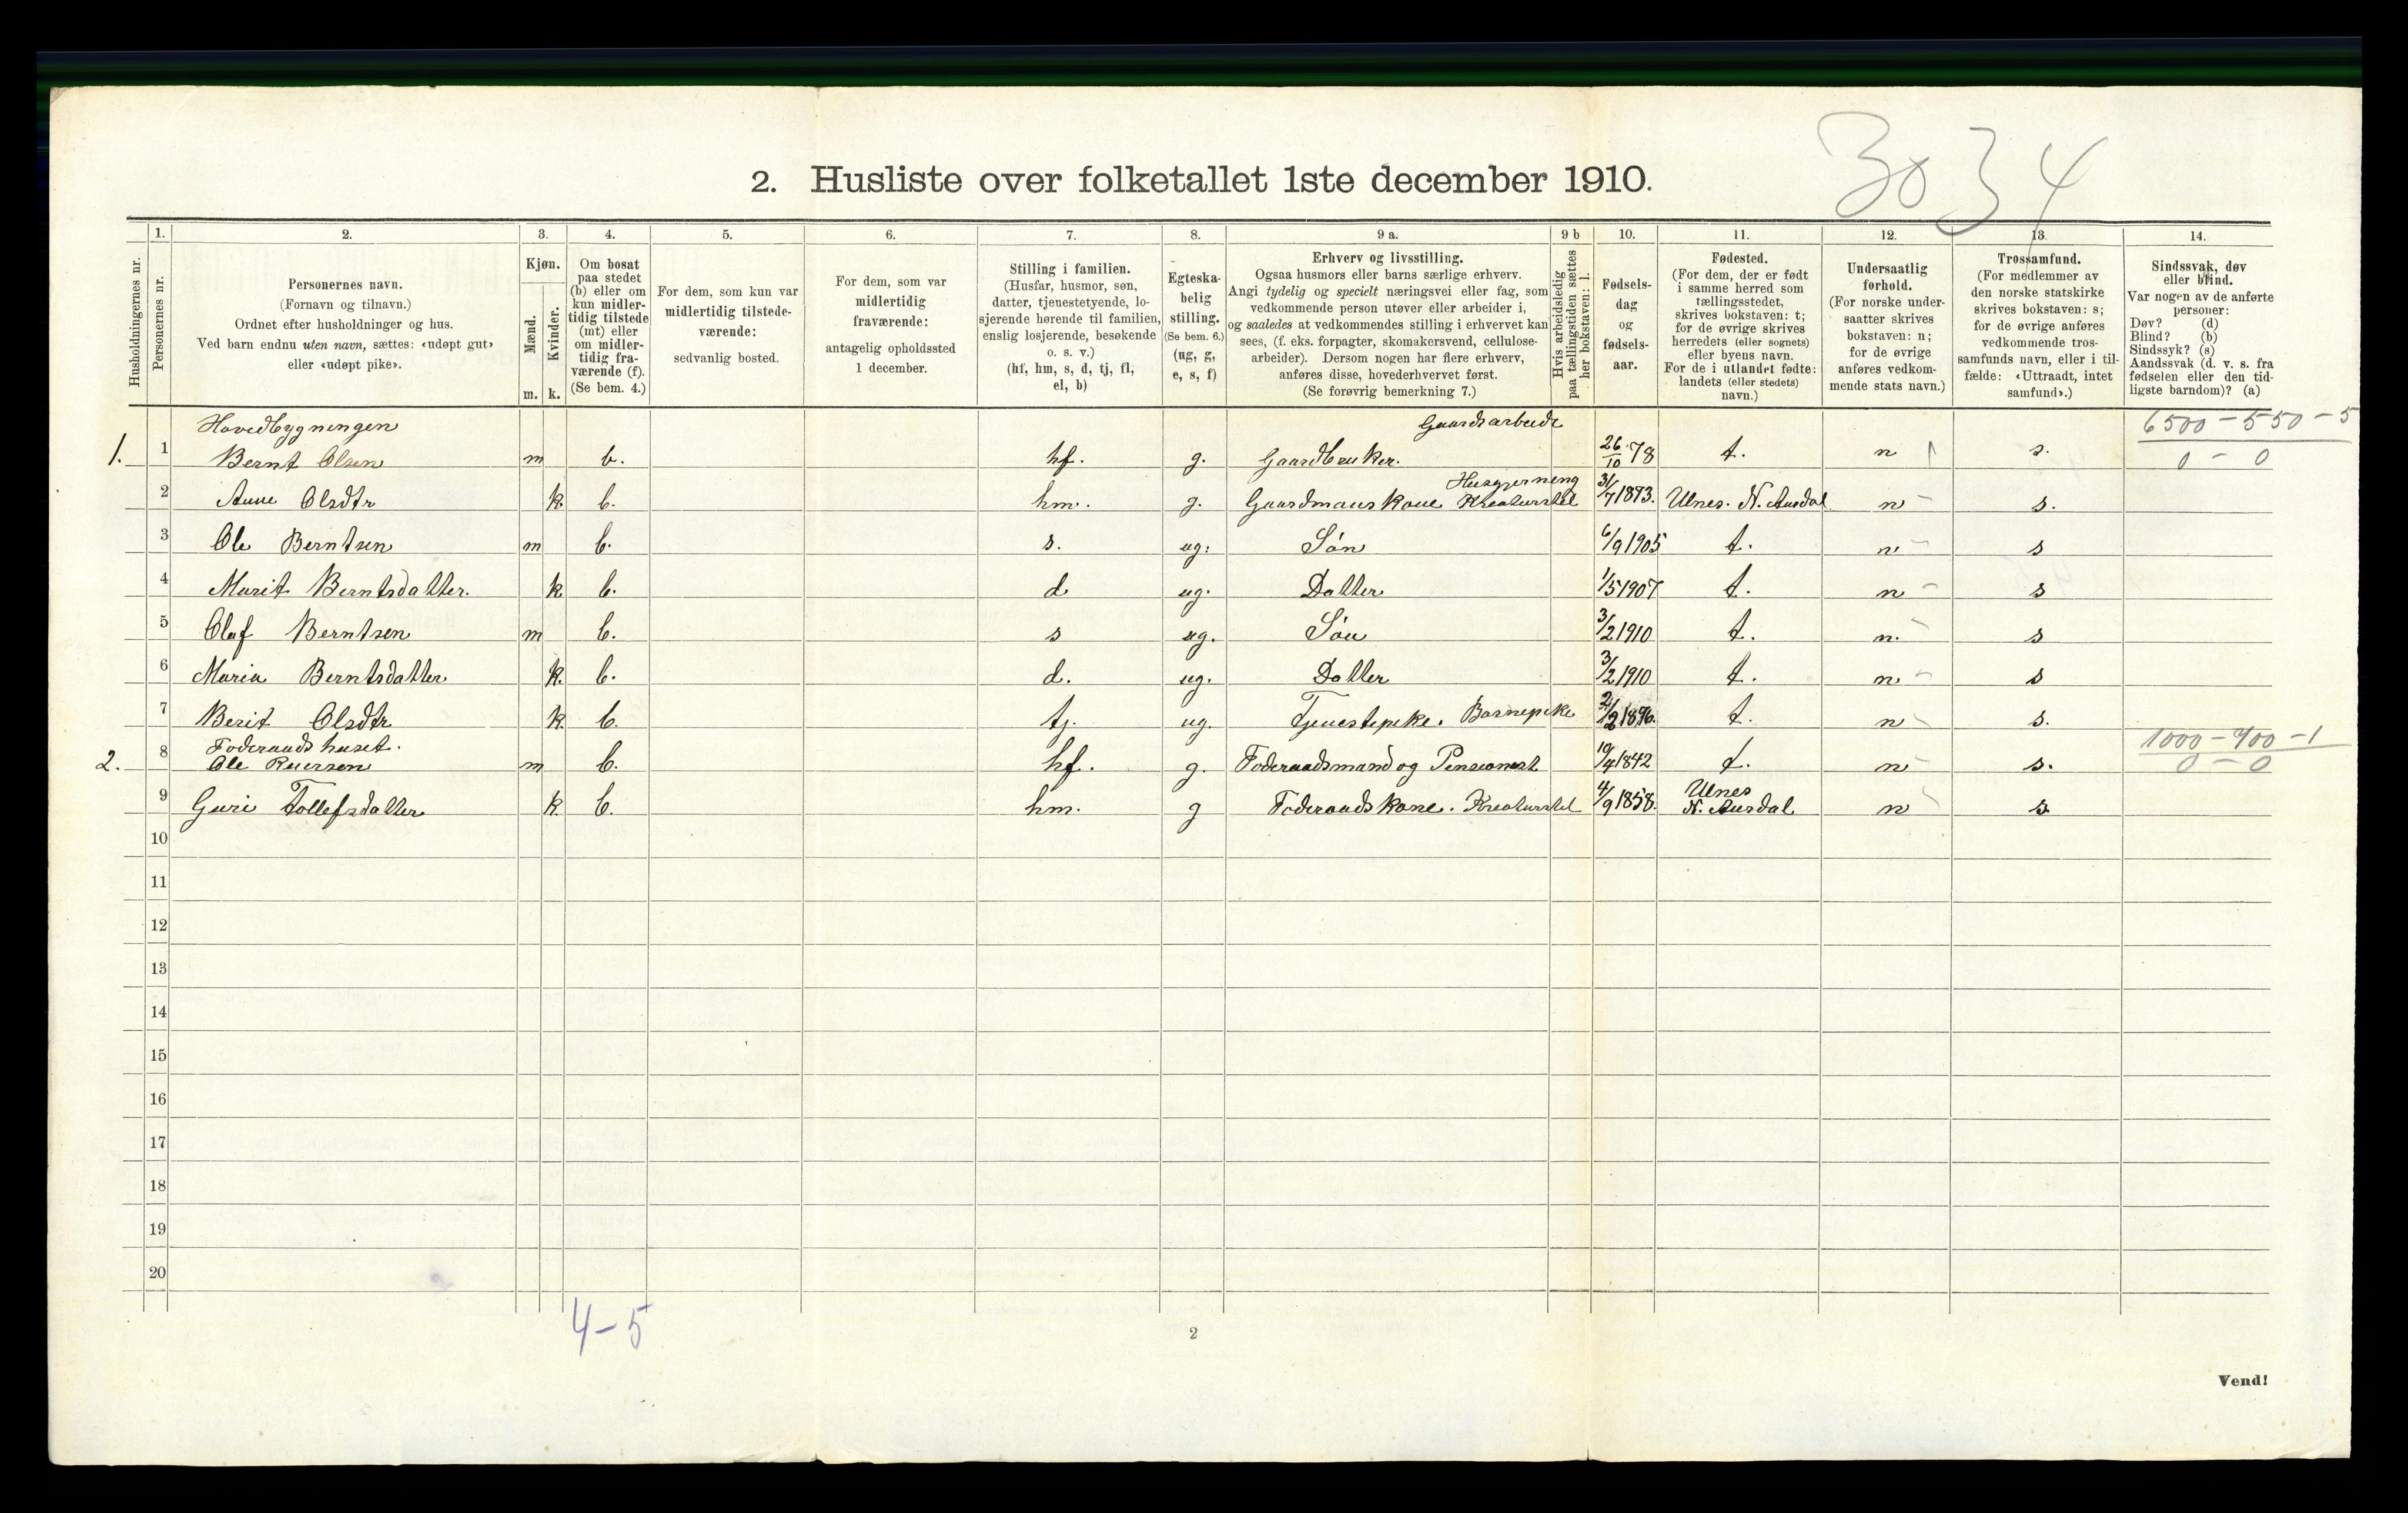 3034
2. Husliste over folketallet 1ste december 1910.
Husholdningernes nr.
1. Personernes nr.
2. Personernes navn.
(Fornavn og tilnavn.)
Ordnet efter husholdninger og hus.
Ved barn endnu uten navn, sættes: «udøpt gut»
eller «udøpt pike».
3. Kjøn.
Mænd. m.
Kvinder. k.
4. Om bosat
paa stedet
(b) eller om
kun midler-
tidig tilstede
(mt) eller
om midler-
tidig fra-
værende (f).
(Se bem. 4.)
5. For dem, som kun var
midlertidig tilstede-
værende:
sedvanlig bosted.
6. For dem, som var
midlertidig
fraværende:
antagelig opholdssted
1 december.
7. Stilling i familien.
(Husfar, husmor, søn,
datter, tjenestetyende, lo-
sjerende hørende til familien,
enslig losjerende, besøkende
o. s. v.)
(hf, hm, s, d, tj, fl,
el, b)
8. Egteska-
belig
stilling.
(Se bem. 6.)
(ug, g,
e, s, f)
9 a. Erhverv og livsstilling.
Ogsaa husmors eller barns særlige erhverv.
Angi tydelig og specielt næringsvei eller fag, som
vedkommende person utøver eller arbeider i,
og saaledes at vedkommendes stilling i erhvervet kan
sees, (f. eks. forpagter, skomakersvend, cellulose-
arbeider). Dersom nogen har flere erhverv,
anføres disse, hovederhvervet først.
(Se forøvrig bemerkning 7.)
9 b Hvis arbeidsledig
paa tællingstiden sættes
her bokstaven: l.
10. Fødsels-
dag
og
fødsels-
aar.
11. Fødested.
(For dem, der er født
i samme herred som
tællingsstedet,
skrives bokstaven: t;
for de øvrige skrives
herredets (eller sognets)
eller byens navn.
For de i utlandet fødte:
landets (eller stedets)
navn.)
12. Undersaatlig
forhold.
(For norske under-
saatter skrives
bokstaven: n;
for de øvrige
anføres vedkom-
mende stats navn.)
13. Trossamfund.
(For medlemmer av
den norske statskirke
skrives bokstaven: s;
for de øvrige anføres
vedkommende tros-
samfunds navn, eller i til-
fælde: «Uttraadt, intet
samfund».)
14. Sindssvak, døv
eller blind.
Var nogen av de anførte
personer:
Døv? (d)
Blind? (b)
Sindssyk? (s)
Aandssvak (d. v. s. fra
fødselen eller den tid-
ligste barndom)? (a)
Hovedbygningen Gaardsarbeide 6500 - 550 - 5
1. 1 Bernt Olsen m b. hf. g. Gaardbruker. 26/10 78 t. n s. 0 - 0
Husgjerning
2 Anne Olsdtr k b. hm. g. Gaardmanskone Kreaturstel 31/7 1883. Ulnes. N. Aurdal n s.
3 Ole Berntsen m b. s. ug. Søn 6/9 1905 t. n. s
4 Marit Berntsdatter. k b. d ug. Datter 1/5 1907 t. n s
5 Olaf Berntsen m b. s ug. Søn 3/2 1910 t. n. s
6 Maria Berntsdatter k. b. d. ug. Datter 3/2 1910 t. n s
7 Berit Olsdtr k. b. tj. ug. Tjenestepike. Barnepike 1896. t. n s.
Foderaadshuset. 1000 - 400 - 1
2. 8 Ole m b. hf. g. Foderaadsmand og Pensionist 19/4 1842 t. n s. 0 - 0
9 Guri Tollefsdatter k. b. hm. g Foderaadskone. Kreaturstel 4/9 1858. Ulnes
N. Aurdal n s.
10
11
12
13
14
15
16
17
18
19
20
4-5
2
Vend!